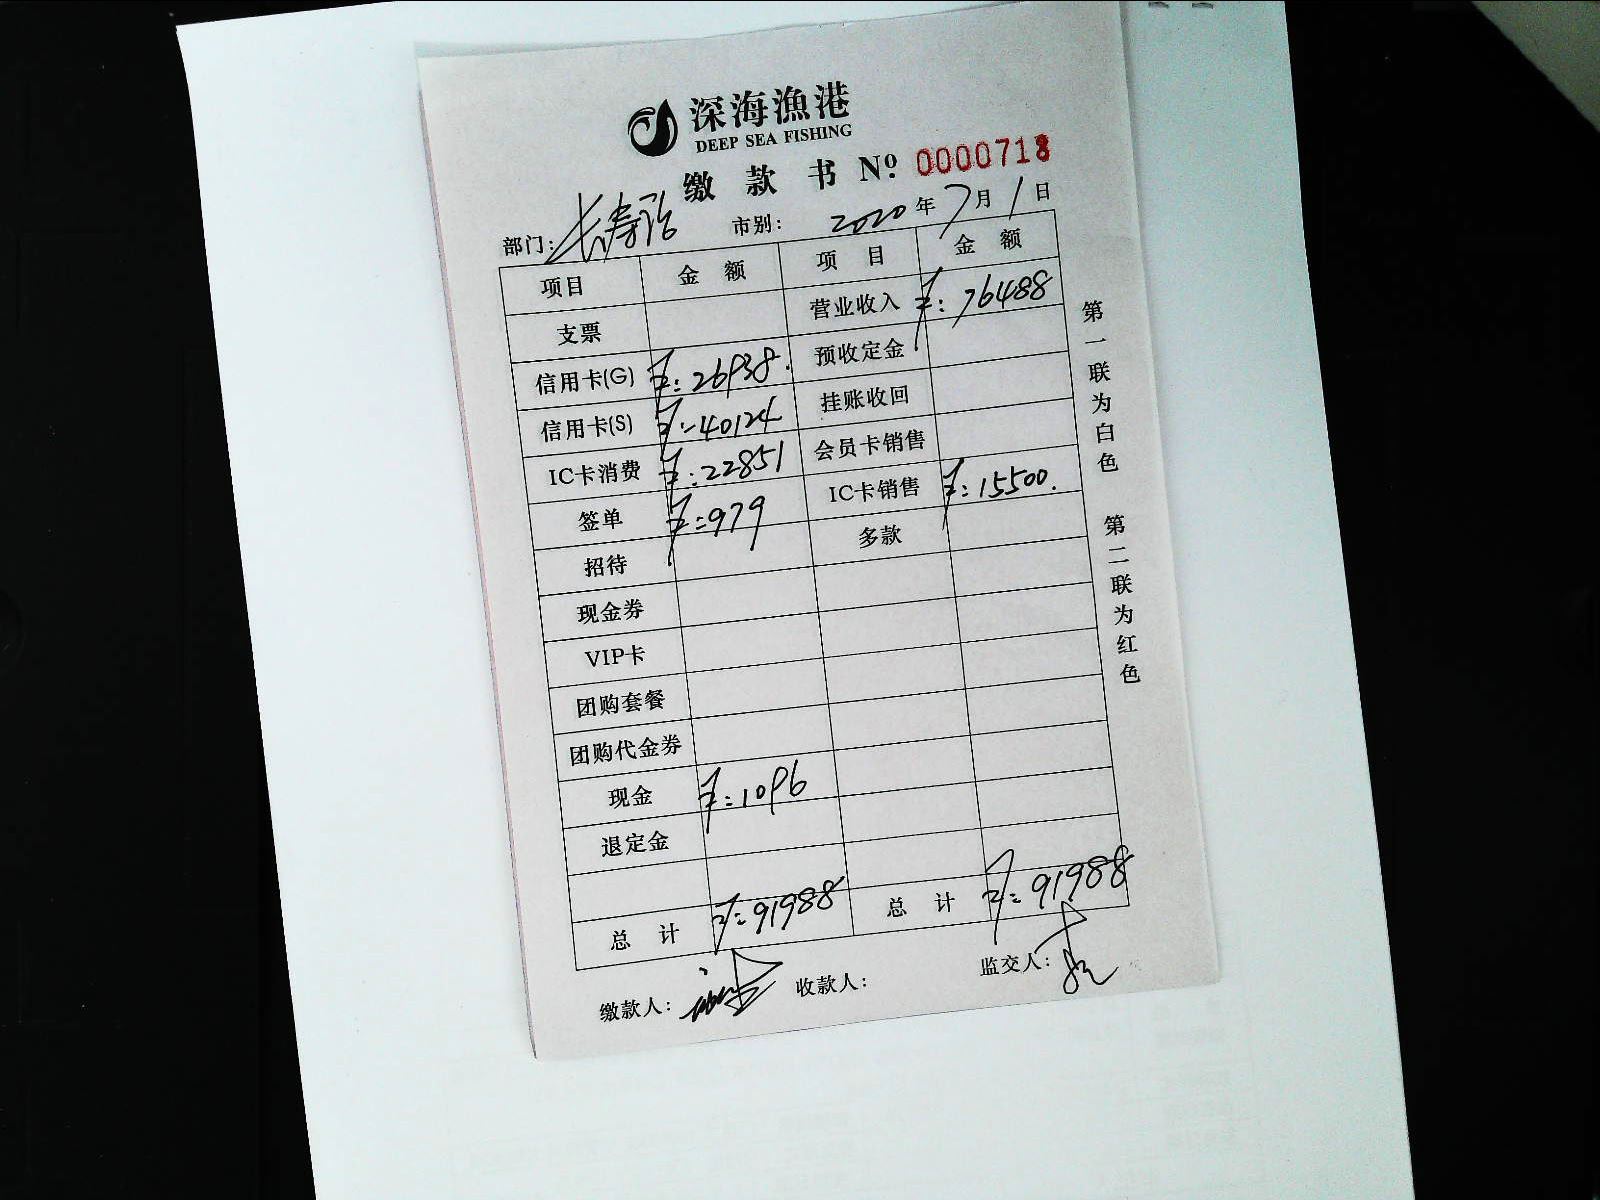 深海漁港
DEEP SEA FISHING
缴款书 Nº 0000718
部门: 长寿路 市别: 2020年7月1日
项目 金额 项目 金额
支票 营业收入 ¥:76488
信用卡(G) ¥:26938. 预收定金
信用卡(S) ¥:40124 挂账收回
IC卡消费 ¥:22851 会员卡销售
签单 ¥:979 IC卡销售 ¥:15500.
招待 多款
现金券
VIP卡
团购套餐
团购代金券
现金 ¥:1096
退定金
总计 ¥:91988 总计 ¥:91988
缴款人: 收款人: 监交人:
第一联为白色 第二联为红色